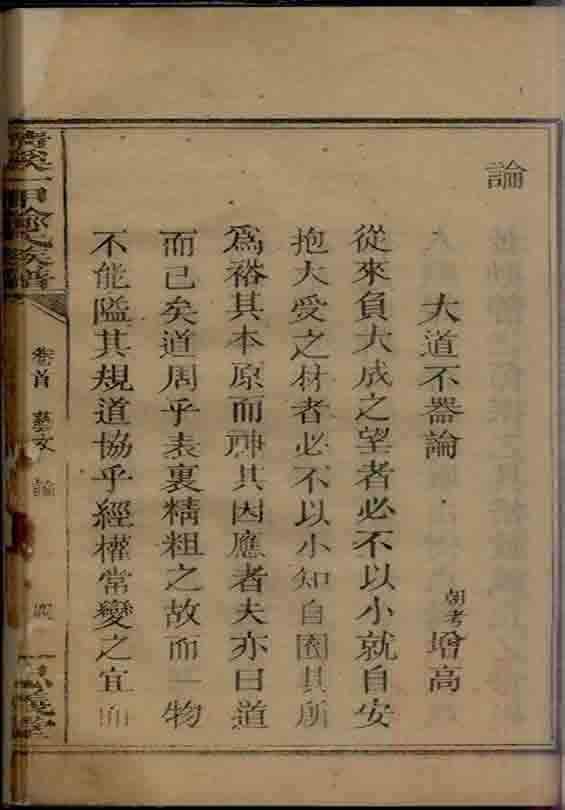 論
大道不器論 朝考 增高
從來負大成之望者必不以小就自安
抱大受之材者必不以小知自囿其所
爲裕其本原而神其因應者夫亦曰道
而已矣道周乎表裏精粗之故而一物
不能隘其規道協乎經權常變之宜而
一甲 氏族譜
卷首 藝文 論
義堂